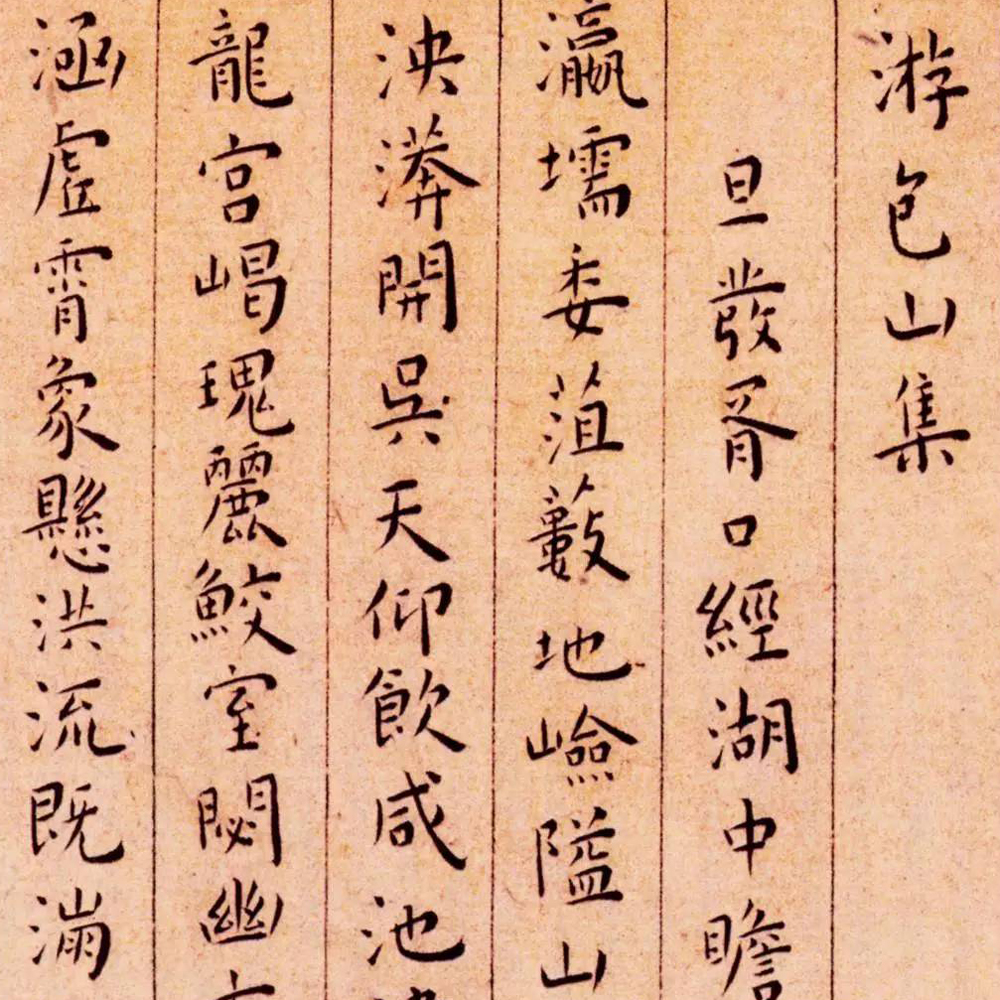 游包山集
旦發胥口經湖中瞻
瀛壖委菹藪地嶮隘山
泱漭開吳天仰飲咸池
龍宮崼瑰麗鮫室閟幽
涵虛霄象懸洪流既滿